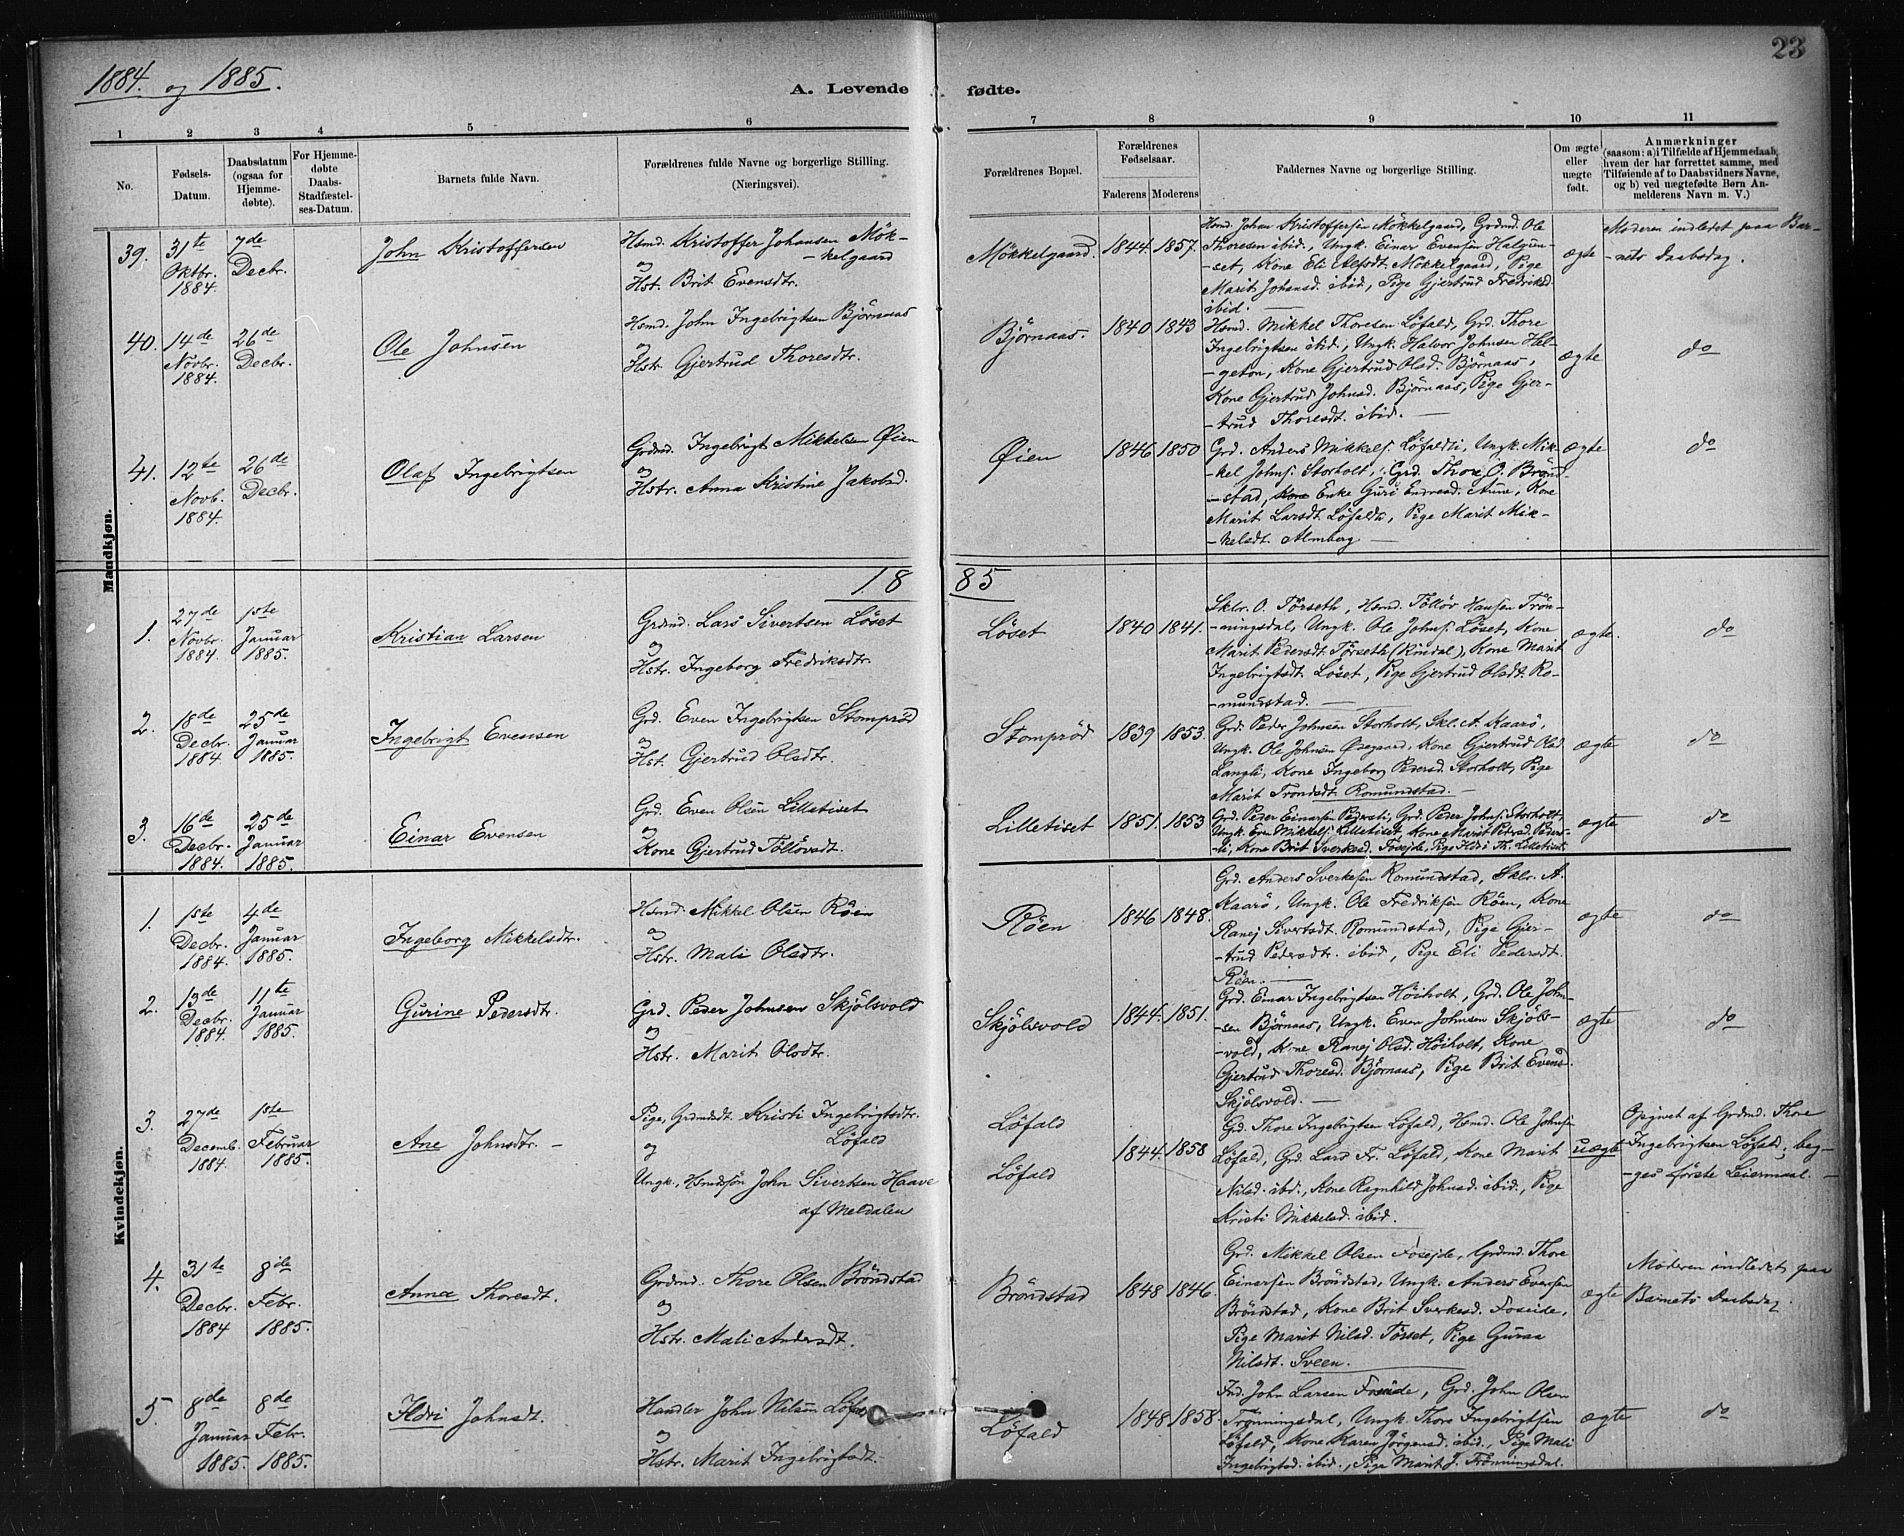 23
1884. og 1885.
A. Levende fødte.
1 2 3 4 5 6 7 8 9 10 11
No.
Fødsels-
Datum.
Daabsdatum
(ogsaa for
Hjemme-
døbte).
For Hjemme-
døbte
Daabs-
Stadfæstel-
ses-Datum.
Barnets fulde Navn.
Forældrenes fulde Navne og borgerlige Stilling.
(Næringsvei).
Forældrenes Bopæl.
Forældrenes
Fødselsaar.
Faderens Moderens
Faddernes Navne og borgerlige Stilling.
Om ægte
eller
uægte
født.
Anmærkninger
(saasom: a) i Tilfælde af Hjemmedaab,
hvem der har forrettet samme, med
Tilføiende af to Daabsvidners Navne,
og b) ved uægtefødte Børn An-
melderens Navn m. V.)
Mandkjøn.
39.
31te
Oktbr.
1884.
7de
Decbr.
John Kristoffersen
Hsmd. Kristoffer Johansen Møk-
-kelgaard
og
Hst. Brit Evensdtr.
Møkkelgaard.
1844. 1857.
Hsmd. Johan Kristoffersen Mökkelgaard, Grdmd. Ole
Thoresen ibid., Ungk. Einar Evensen Halgun-
-set, Kone Eli Olsdt. Mökkelgaard, Pige
Marit Johansd. ibid., Pige Gjertrud Fredriksd.
ibid.
ægte
Moderen indledet paa Bar-
-nets Daabsdag.
40.
14de
Novbr.
1884.
26de
Decbr.
Ole Johnsen
Hsmd. John Ingebrigtsen Bjørnaas
og
Hstr. Gjertrud Thoresdtr.
Bjørnaas.
1840 1843
Hsmd. Mikkel Thoresen Løfald, Grd. Thore
Ingebrigtsen ibid., Ungk. Halvor Johnsen Hal-
-geton, Kone Gjertrud Olsd. Bjørnaas,
Kone Gjertrud Johnsd. Bjørnaas, Pige Gjer-
-trud Thoresdt. ibid.
ægte
do
41.
12te
Novb.
1884.
26de
Decbr.
Olaf Ingebrigtsen
Grdmd. Ingebrigt Mikkelsen Øien
og
Hstr. Anna Kristine Jakobsd.
Øien
1846 1850
Grd. Anders Mikkels. Løfaldli, Ungk. Mik-
-kel Johns. Storholt, Grd. Thore O. Brønd-
-stad, Enke Guri Endresd. Aune, Kone
Marit Larsdt. Løfald, Pige Marit Mik-
-kelsdt. Almberg
ægte
do
1885
1.
27de
Novbr.
1884.
1ste
Januar
1885.
Kristian Larsen
Grdmd. Lars Sivertsen Løset
og
Hstr. Ingeborg Fredriksdtr.
Løset
1840 1841.
Sklr. O. Törseth, Hsmd. Töllöv Hansen Trön-
-ningsdal, Ungk. Ole Johns. Løset, Kone
Marit Pedersdt. Törseth (Rindal), Kone Marit
Ingebrigtsdt. Løset, Pige Gjertrud Olsdt. Ro-
-mundstad.
ægte.
do
2.
18de
Decbr.
1884.
25de
Januar
1885.
Ingebrigt Evensen
Grd. Even Ingebrigtsen Stomprød
og
Hst. Gjertrud Olsdtr.
Stomprød
1839 1853.
Grd. Peder Johnsen Storholt, Skl. A. Kaarö,
Ungk. Ole Johnsen Øsegaard, Kone Gjertrud Olsd.
Langli, Kone Ingeborg Pedersd. Storholt, Pige
Marit Trondsdt. Romundstad.
ægte
do
3.
16de
Decbr.
1884.
25de
Januar
1885.
Einar Evensen
Grd. Even Olsen Lilletiset
og
Kone Gjertrud Töllövsdt.
Lilletiset
1851. 1853
Grd. Peder Einarsen, Grd. Peder Johns. Storholt,
Ungk. Even Mikkels. Lilletiset, Kone Marit Petrsd. Peders-
-li, Kone Brit Sverkesd. Foseide, Pige Ildri Th. Lilletiset
ægte
do
Kvindekjøn.
1.
1ste
Decbr.
1884.
4de
Januar
1885.
Ingeborg Mikkelsdtr.
Hsmd. Mikkel Olsen Röen
og
Hstr. Mali Olsdtr.
Röen
1846 1848.
Grd. Anders Sverkesen Romundstad, Sklr. A.
Kaarö, Ungk. Ole Fredriksen Röen, Kone
Ranej Sivertsdt. Romundstad, Pige Gjer-
-trud Pedersdtr. ibid, Pige Eli Pedersdt.
Röen.
ægte
do
2.
13de
Decbr.
1884.
11te
Januar
1885.
Gurine Pedersdt.
Grd. Peder Johnsen Skjölsvold
og
Hstr. Marit Olsdtr.
Skjölsvold
1844. 1851.
Grd. Einar Ingebrigtsen Höiholt, Grd. Ole John-
-sen Bjørnaas, Ungk. Even Johnsen Skjöls-
-vold, Kone Ranej Olsd. Höiholt, Kone
Gjertrud Thoresd. Bjørnaas, Pige Brit Evensd.
Skjölsvold.
ægte
do
3.
27de
Decemb.
1884.
1ste
Februar
1885.
Ane Johnsdtr.
Pige, Grdmdsdt. Kristi Ingebrigtsdtr.
Löfald
og
Ungk., Hsmdssön John Sivertsen Haave
af Meldalen
Löfald
Löfald
1844. 1858
Gd. Thore Ingebrigtsen Löfald, Hsmd. Ole Johnsen
Löfald, Grd. Lars Fr. Löfald, Kone Marit
Nilsd. ibd., Kone Ragnhild Johnsd. ibid., Pige
Kristi Mikkelsd. ibid.
uægte
Opgivet af Grdmd. Thore
Ingebrigtsen Löfald, beg-
-ges første Leiermaal.
4.
31te
Decbr.
1884
8de
Febr.
1885.
Anna Thoresdt.
Grdmd. Thore Olsen Bröndstad
og
Hstr. Mali Andersdt.
Bröndstad
1848 1846.
Grd. Mikkel Olsen Foseide, Grdmd. Thore
Einarsen Bröndstad, Ungk. Anders Evensen
Bröndstad, Kone Brit Sverkesd. Foseide,
Pige Marit Nilsd. Törset, Pige Guraa
Nilsdt. Sveen.
ægte
Moderen indledet paa
Barnets Daabsdag.
5.
8de
Januar
1885.
8de
Febr.
1885.
Ildri Johnsdt.
Handler John Nilsen Löfald
og
Hstr. Marit Ingebrigtsdt.
Löfald
1848 1858.
Ind. John Larsen Foseide, Grd. John Olsen
Trønningsdal, Ungk. Thore Ingebrigtsen
Löfald, Kone Karen Jørgensd. ibid., Pige Mali
Ingebrigtsd. ibid., Pige Marit J. Trönningsdal.
ægte
do